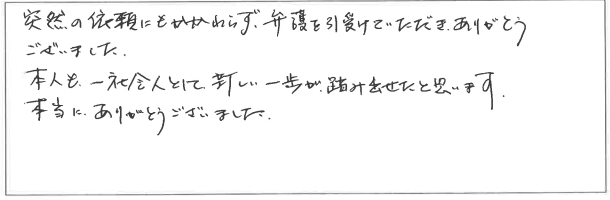 突然の依頼にもかかわらず、弁護を引受けていただき、ありがとう
ございました。
本人も、一社会人として、新しい一歩が、踏み出せたと思います。
本当に、ありがとうございました。